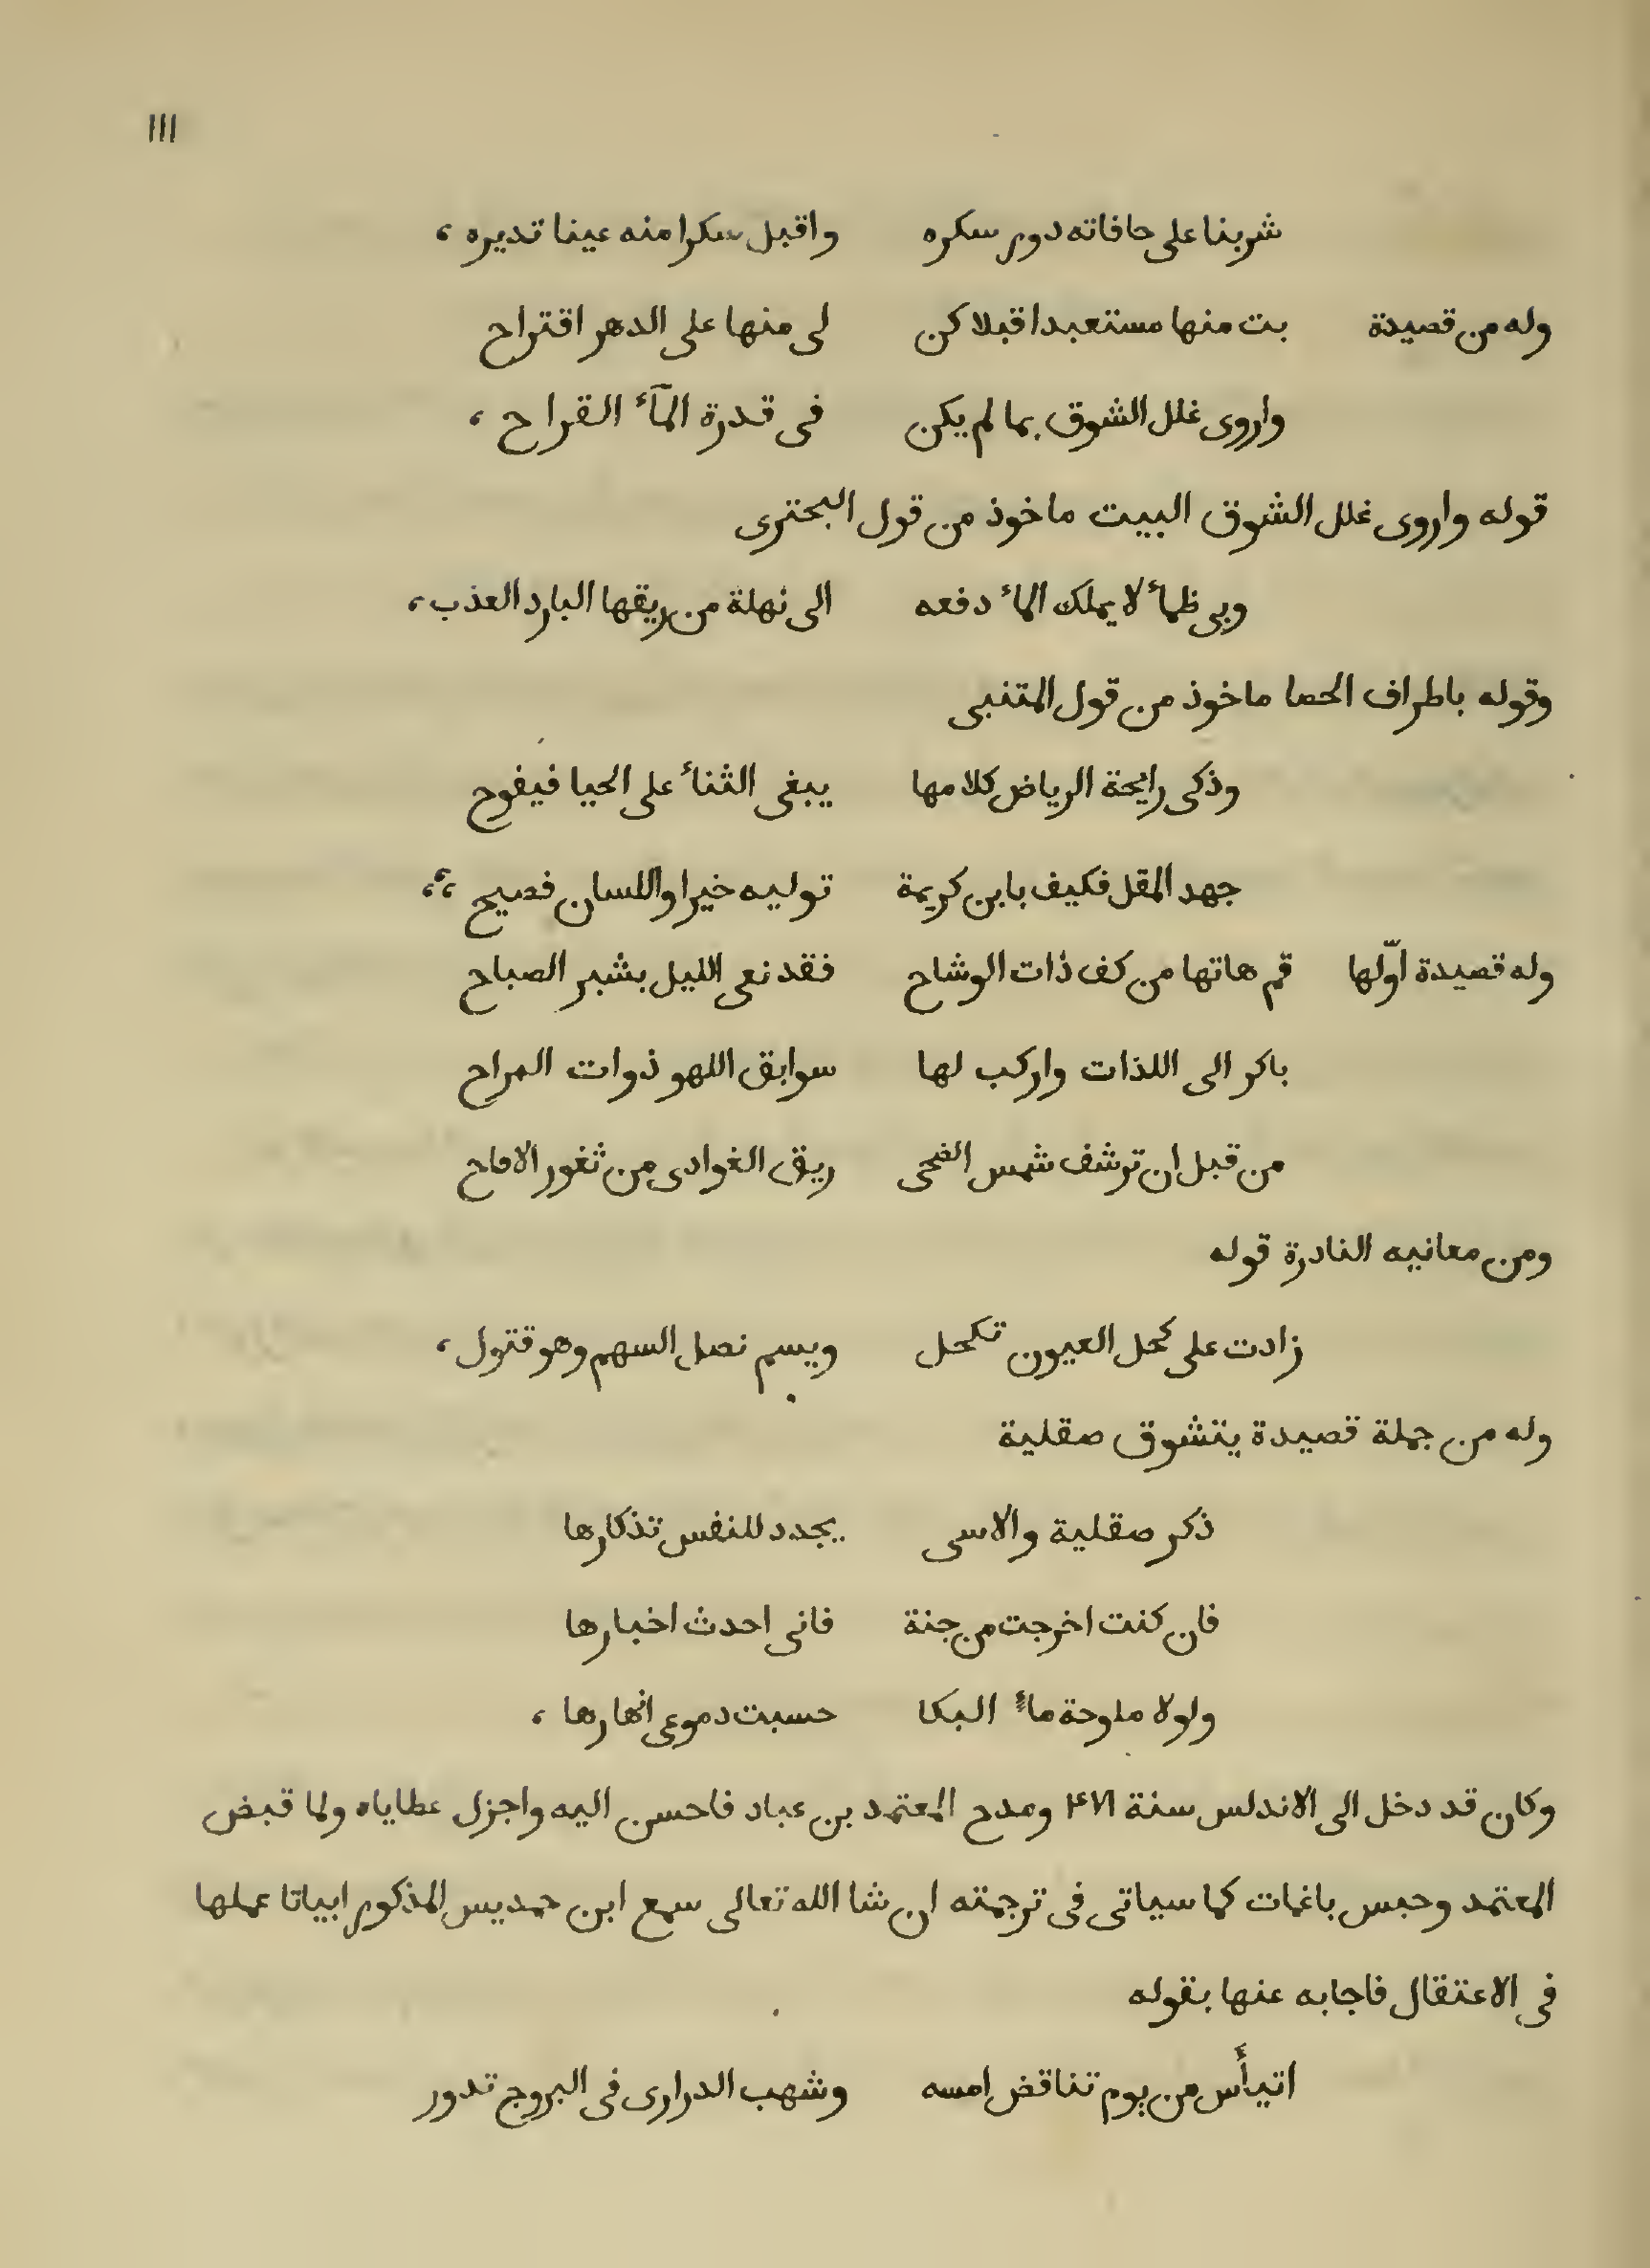 ١١١
شربنا على حافاته دور سكره واقبل سكرا منه عينا تديره ،
وله من قصيدة بت منها مستعبدا قبلا كن لى منها على الدهر اقتراح
واروى غلل الشوق بما لم يكن فى قدرة المآء القراح ،
قوله واروى غلل الشوق البيت ماخوذ من قول البحترى
وبى ظمأ لا يملك الماء دفعه الى نهلة من ريقها البارد العذب ،
وقوله باطراف الحصا ماخوذ من قول المتنبى
وذكى رايحة الرياض كلامها يبغى الثناء على الحيا فيفوح
جهد المقل فكيف بابن كريمة توليه خيرا واللسان فصيح ،،
وله قصيدة اوّلها قم هاتها من كف ذات الوشاح فقد نعى الليل بشير الصباح
باكر الى اللذات واركب لها سوابق اللهو ذوات المراح
من قبل ان ترشف شمس الضحى ريق الغوادى من ثغور الاقاح
ومن معانيه النادرة قوله
زادت على كحل العيون تكحل ويسم نصل السهم وهو قتول ،
وله من جملة قصيدة يتشوق صقلية
ذكر صقلية والاسى يجدد للنفس تذكارها
فان كنت اخرجت من جنة فانى احدث اخبارها
ولولا ملوحة ماء البكا حسبت دموعى انهارها ،
وكان قد دخل الى الاندلس سنة ۴۷۱ ومدح المعتمد بن عباد فاحسن اليه واجزل عطاياه ولما قبض
المعتمد وحبس باغمات كما سياتى فى ترجمته ان شا الله تعالى سمع ابن حمديس المذكور ابياتا عملها
فى الاعتقال فاجابه عنها بقوله
اتيأس من يوم تناقض امسه وشهب الدرارى فى البروج تدور